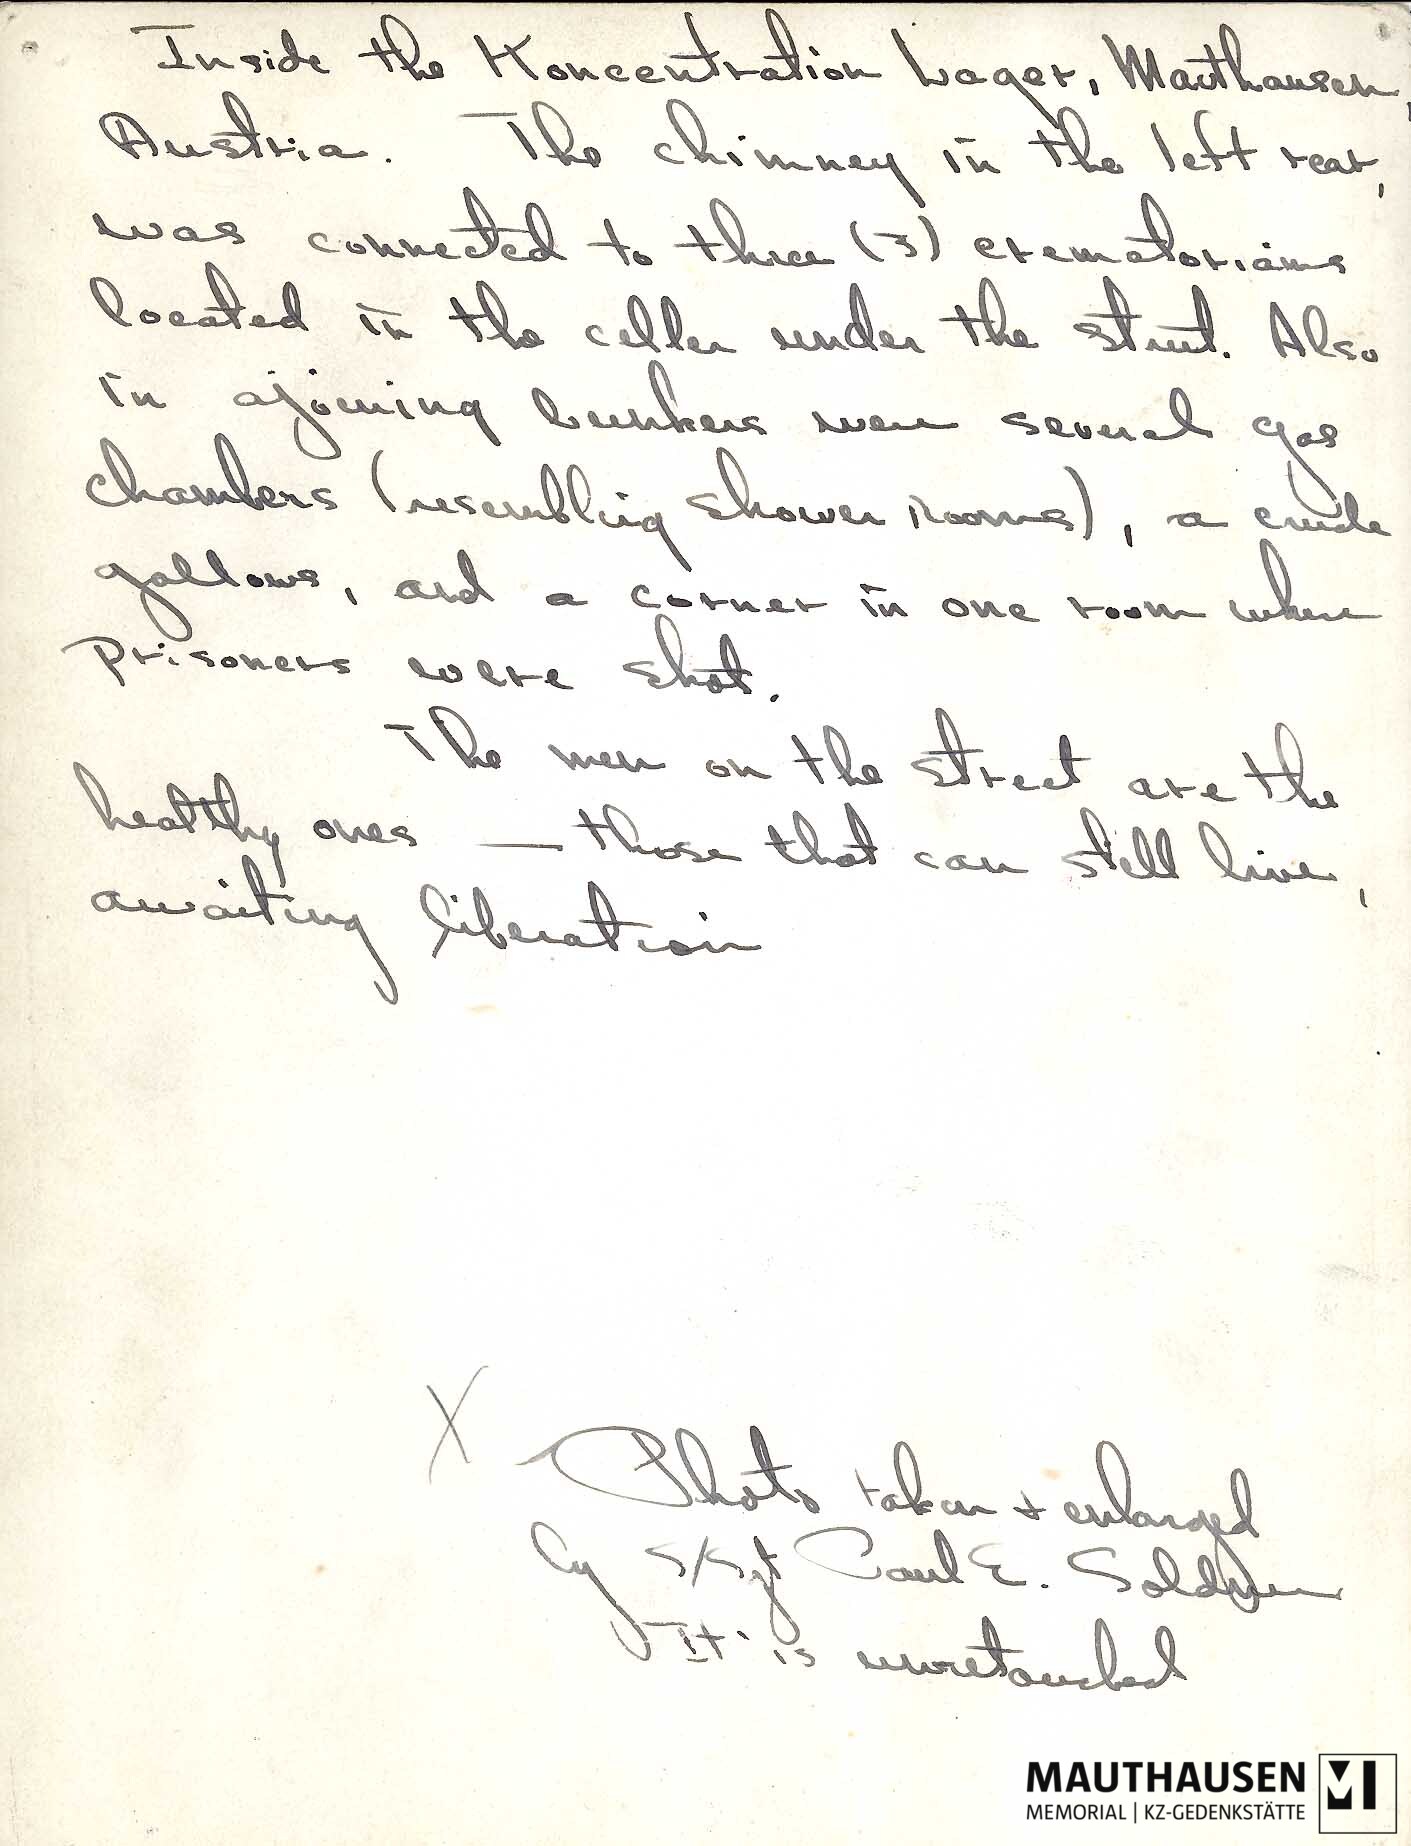 Inside the Koncentration Lager, Mauthausen,
Austria. The chimney in the left rear,
was connected to three (3) crematoriams
located in the celler under the street. Also
in ajoining bunkers were several gas
chambers (resembling shower rooms), a crude
gallows, and a corner in one room where
prisoners were shot.
The men on the street are the
healthy ones — those that can still live,
awaiting liberation
X
Photo taken + enlarged
by S/Sgt Paul E. Soldner
It is unretouched
MAUTHAUSEN
MEMORIAL | KZ-GEDENKSTÄTTE